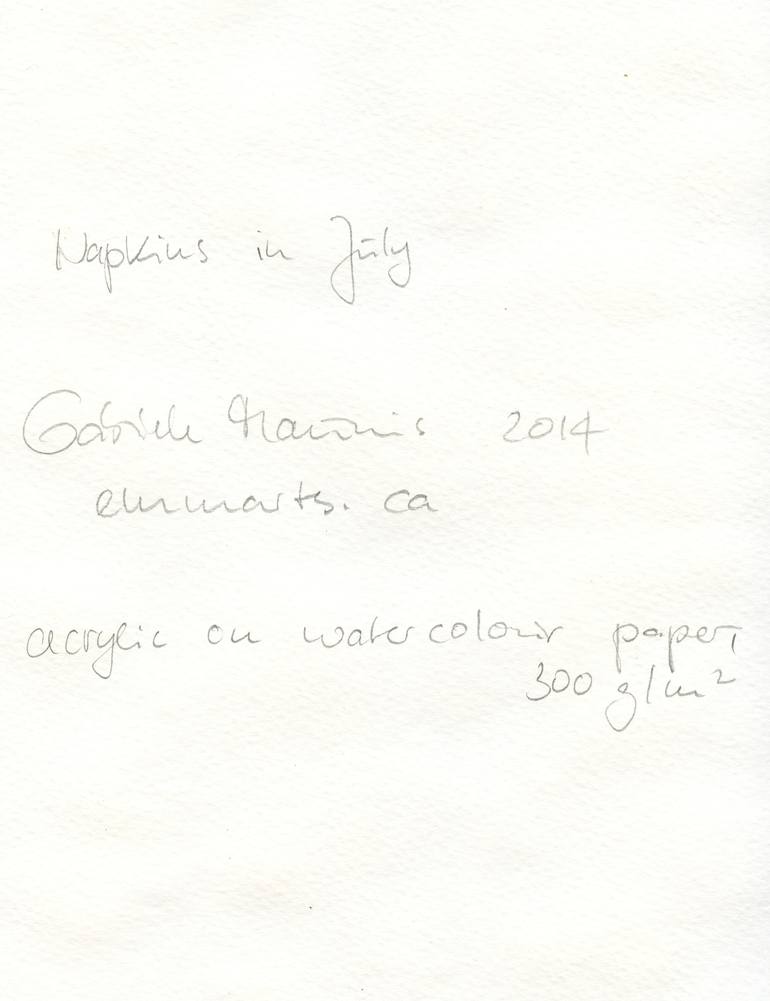 Napkins in July
Gabriele Maurus 2014
emmarts.ca
acrylic on watercolour paper,
300 g/m²